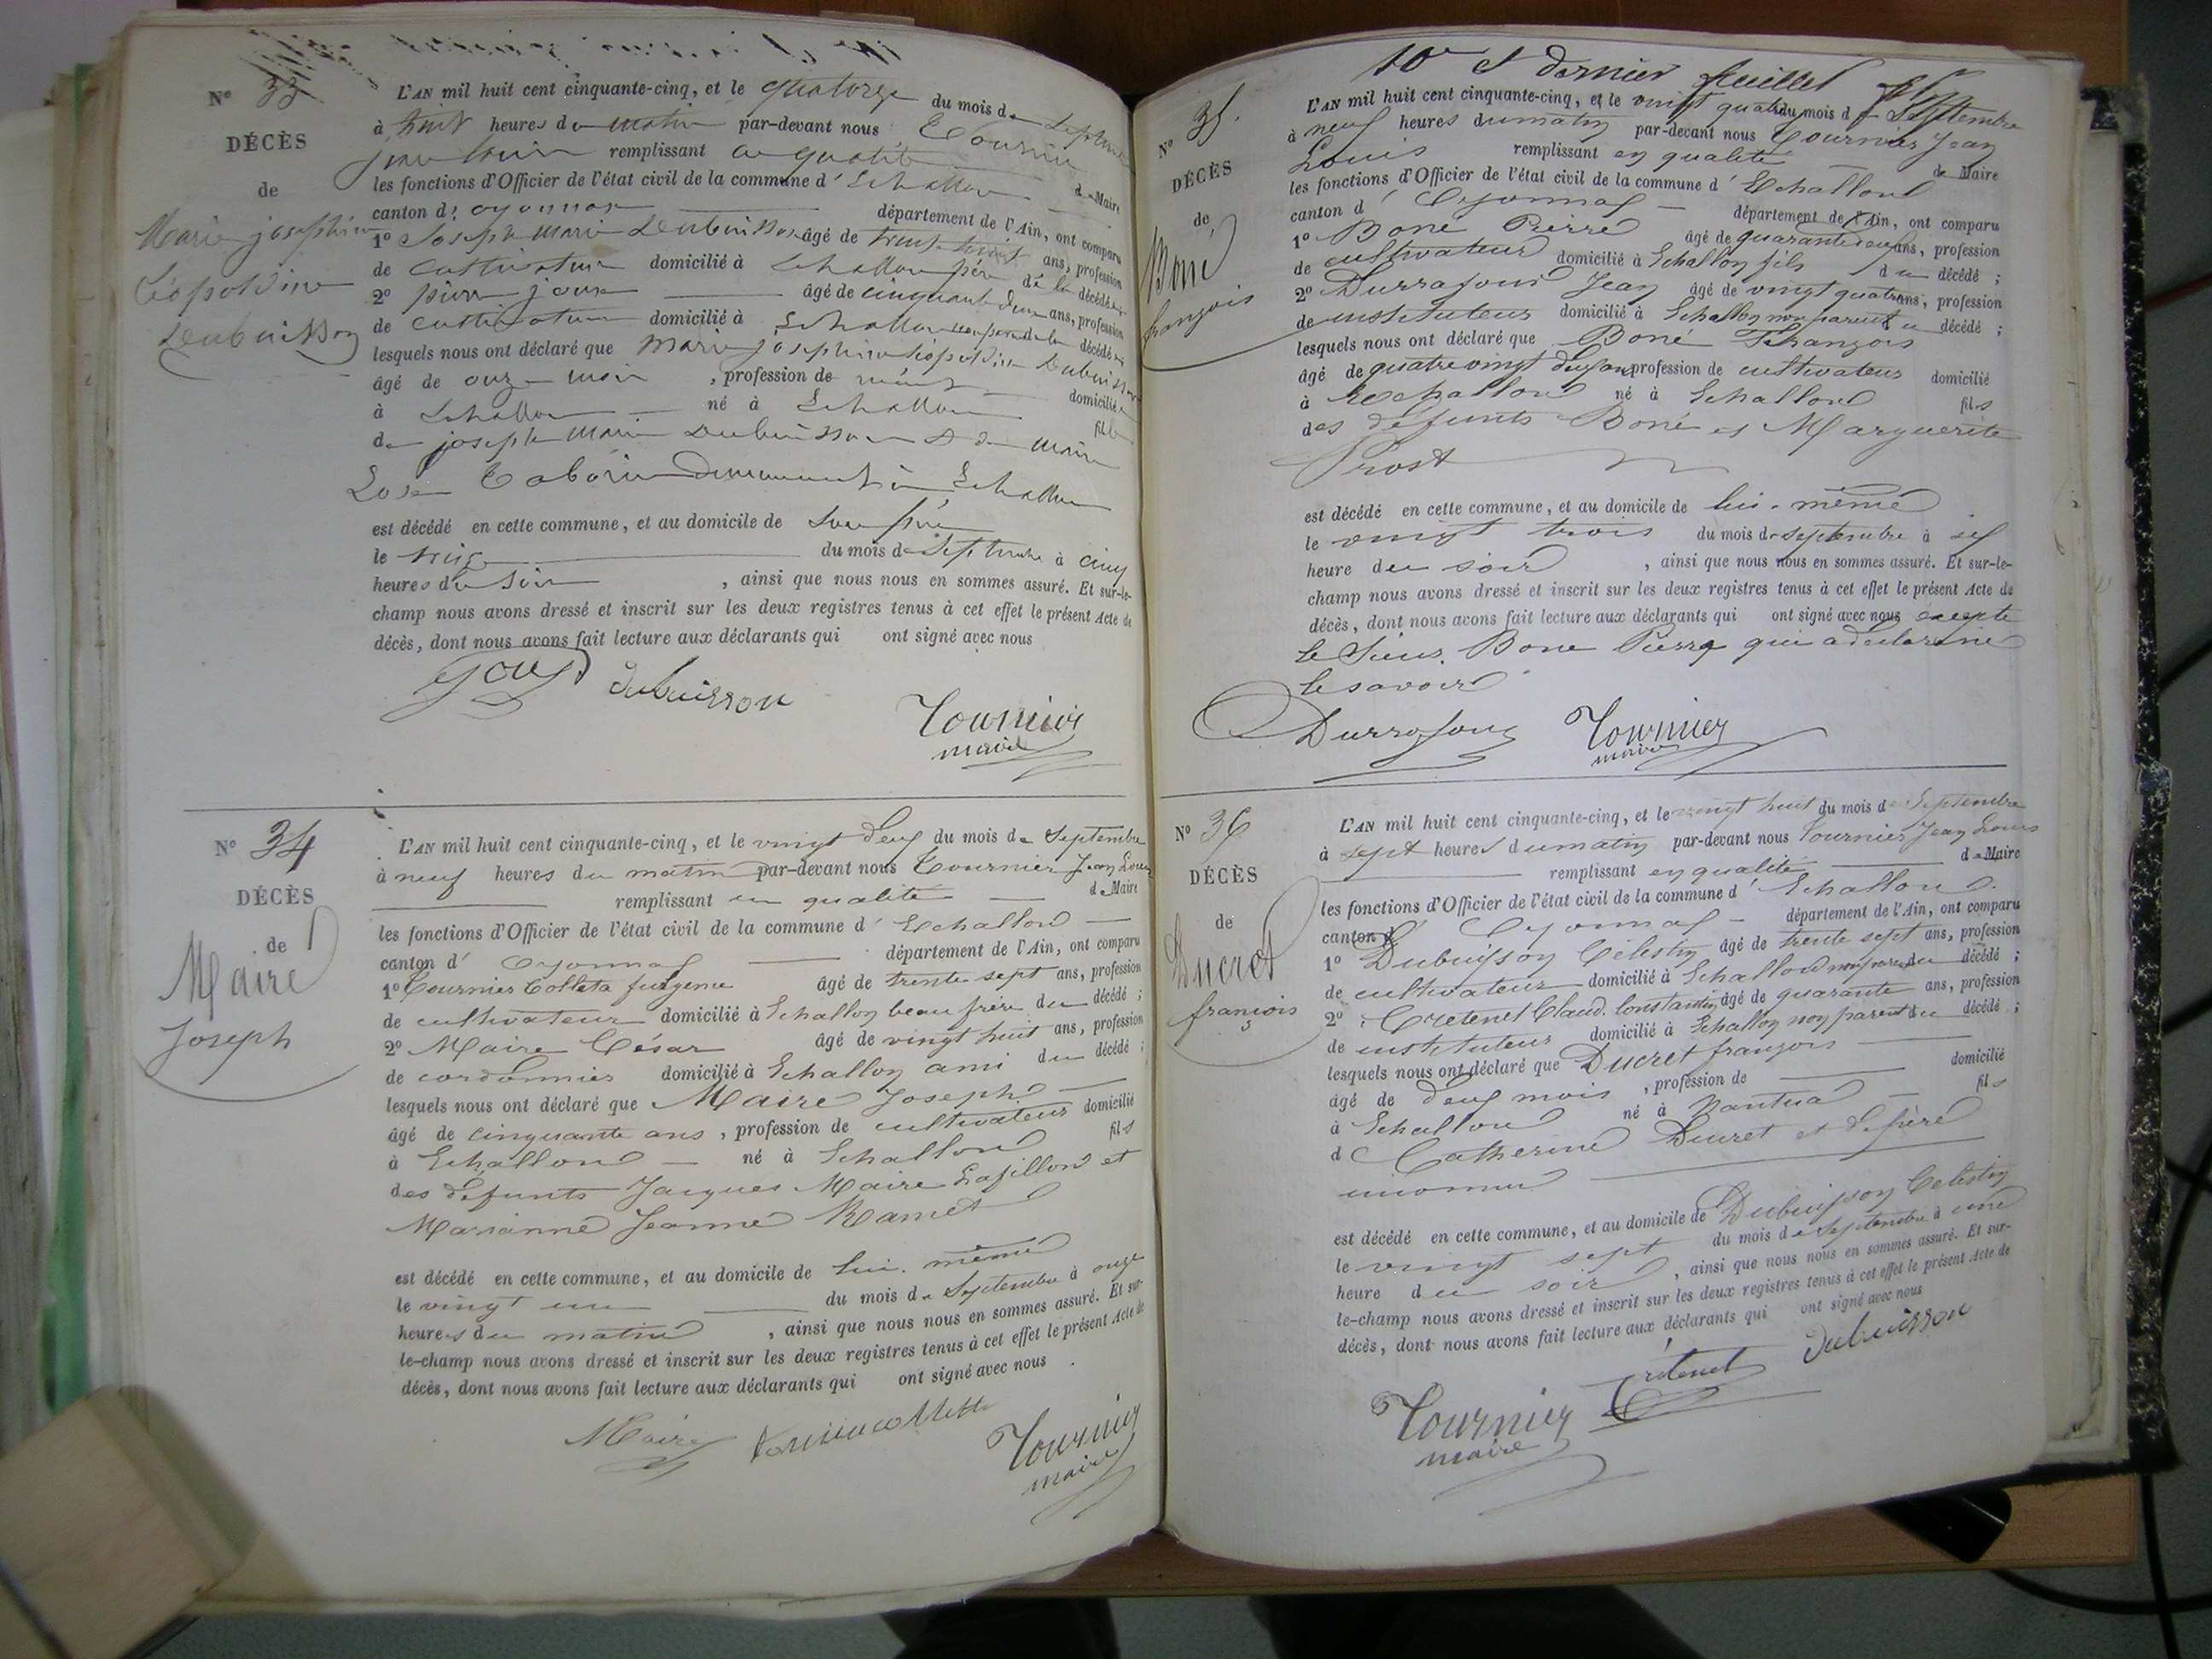 N° 33
DÉCÈS
de
Marie josephine
Léopoldine
Dubuisson
L'AN mil huit cent cinquante-cinq, et le quatorze du mois de septembre
à huit heures du matin par-devant nous Tournier
jean louis remplissant en qualité de Maire
les fonctions d'Officier de l'état civil de la commune d' Echallon
canton d' oyonnax département de l'Ain, ont comparu
1° Joseph marie Dubuisson âgé de trente huit ans, profession
de cultivateur domicilié à Echallon père de la décédée
2° pierre joux âgé de cinquante deux ans, profession
de cultivateur domicilié à Echallon non parent de la décédée
lesquels nous ont déclaré que marie josephine léopoldine Dubuisson
âgé de onze mois , profession de domicilié
à Echallon né à Echallon fille
de joseph marie Dubuisson et de marie
Tabouri demeurant à Echallon
est décédé en cette commune, et au domicile de son père
le treize du mois de septembre à cinq
heures du soir , ainsi que nous nous en sommes assuré. Et sur-le-
champ nous avons dressé et inscrit sur les deux registres tenus à cet effet le présent Acte de
décès, dont nous avons fait lecture aux déclarants qui ont signé avec nous
joux dubuisson Tournier
maire
N° 34
DÉCÈS
de
Maire
Joseph
L'AN mil huit cent cinquante-cinq, et le vingt deux du mois de Septembre
à neuf heures du matin par-devant nous Tournier Jean Louis
remplissant en qualité de Maire
les fonctions d'Officier de l'état civil de la commune d' Echallon
canton d' Oyonnax département de l'Ain, ont comparu
1° Tournier Colleta fulgence âgé de trente sept ans, profession
de cultivateur domicilié à Echallon beau frère du décédé ;
2° Maire César âgé de vingt huit ans, profession
de cordonnier domicilié à Echallon ami du décédé ;
lesquels nous ont déclaré que Maire Joseph
âgé de cinquante ans , profession de cultivateur domicilié
à Echallon né à Echallon fils
des défunts Jacques Maire Lafillon et
Marianne Jeanne Ramel
est décédé en cette commune, et au domicile de lui-même
le vingt un du mois de Septembre à onze
heures du matin , ainsi que nous nous en sommes assuré. Et sur-
le-champ nous avons dressé et inscrit sur les deux registres tenus à cet effet le présent Acte de
décès, dont nous avons fait lecture aux déclarants qui ont signé avec nous .
Maire Tournier Tournier
maire
10e et dernier feuillet
N° 35.
DÉCÈS
de
Boné
françois
L'AN mil huit cent cinquante-cinq, et le vingt quatre du mois de Septembre
à neuf heures du matin par-devant nous Tournier Jean
Louis remplissant en qualité de Maire
les fonctions d'Officier de l'état civil de la commune d' Echallon
canton d' Oyonnax département de l'Ain, ont comparu
1° Boné Pierre âgé de quarante deux ans, profession
de cultivateur domicilié à Echallon fils du décédé ;
2° Durrafour Jean âgé de vingt quatre ans, profession
de instituteur domicilié à Echallon non parent du décédé ;
lesquels nous ont déclaré que Boné François
âgé de quatre vingt deux ans profession de cultivateur domicilié
à Echallon né à Echallon fils
des défunts Boné et Marguerite
Prost
est décédé en cette commune, et au domicile de lui-même
le vingt trois du mois de septembre à six
heure du soir , ainsi que nous nous en sommes assuré. Et sur-le-
champ nous avons dressé et inscrit sur les deux registres tenus à cet effet le présent Acte de
décès, dont nous avons fait lecture aux déclarants qui ont signé avec nous excepté
le Sieur. Bone Pierre qui a déclaré ne
le savoir
Durrafour Tournier
maire
N° 36
DÉCÈS
de
Ducret
françois
L'AN mil huit cent cinquante-cinq, et le vingt huit du mois de Septembre
à sept heures du matin par-devant nous Tournier Jean Louis
remplissant en qualité de Maire
les fonctions d'Officier de l'état civil de la commune d' Echallon
canton d' Oyonnax département de l'Ain, ont comparu
1° Dubuisson Célestin âgé de trente sept ans, profession
de cultivateur domicilié à Echallon non parent du décédé ;
2° Cretenet Claud. Constantin âgé de quarante ans, profession
de instituteur domicilié à Echallon non parent du décédé ;
lesquels nous ont déclaré que Ducret françois
âgé de deux mois , profession de domicilié
à Echallon né à Nantua fils
d Catherine Ducret et de père
inconnu
est décédé en cette commune, et au domicile de Dubuisson Celestin
le vingt sept du mois de Septembre à une
heure du soir , ainsi que nous nous en sommes assuré. Et sur-
le-champ nous avons dressé et inscrit sur les deux registres tenus à cet effet le présent Acte de
décès, dont nous avons fait lecture aux déclarants qui ont signé avec nous
Tournier Crétenet dubuisson
maire